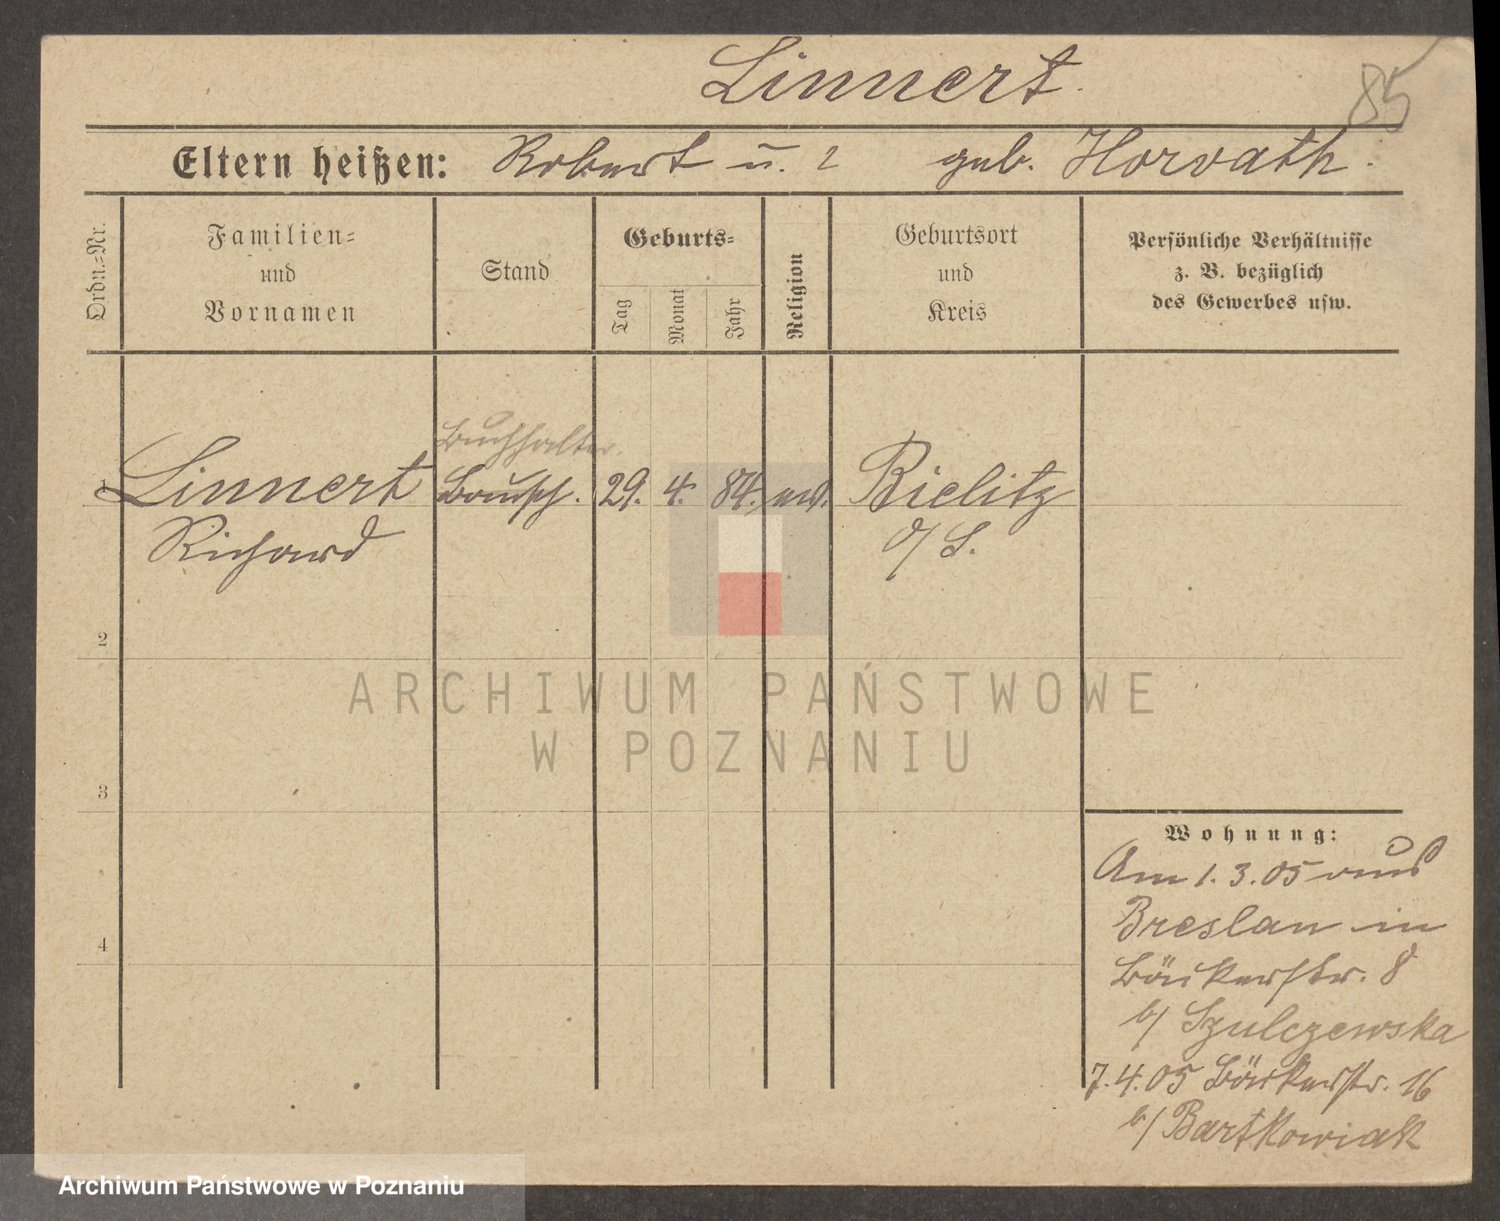 Linnert.
85
Eltern heißen: Robert u. ? geb. Horvath.
Ordn.-Nr.
Familien- und Vornamen
Stand
Geburts-
Tag
Monat
Jahr
Religion
Geburtsort und Kreis
Persönliche Verhältnisse
z. B. bezüglich
des Gewerbes usw.
Buchhalter.
1 Linnert 29. 4. 84. Bielitz
Richard O/S.
2
3
4
ARCHIWUM PAŃSTWOWE
W POZNANIU
Wohnung:
Am 1.3.05 aus
Breslau in
Bäckerstr. 8
b/ Szulczewska
7.4.05 Bäckerstr. 16
b/ Bartkowiak
Archiwum Państwowe w Poznaniu